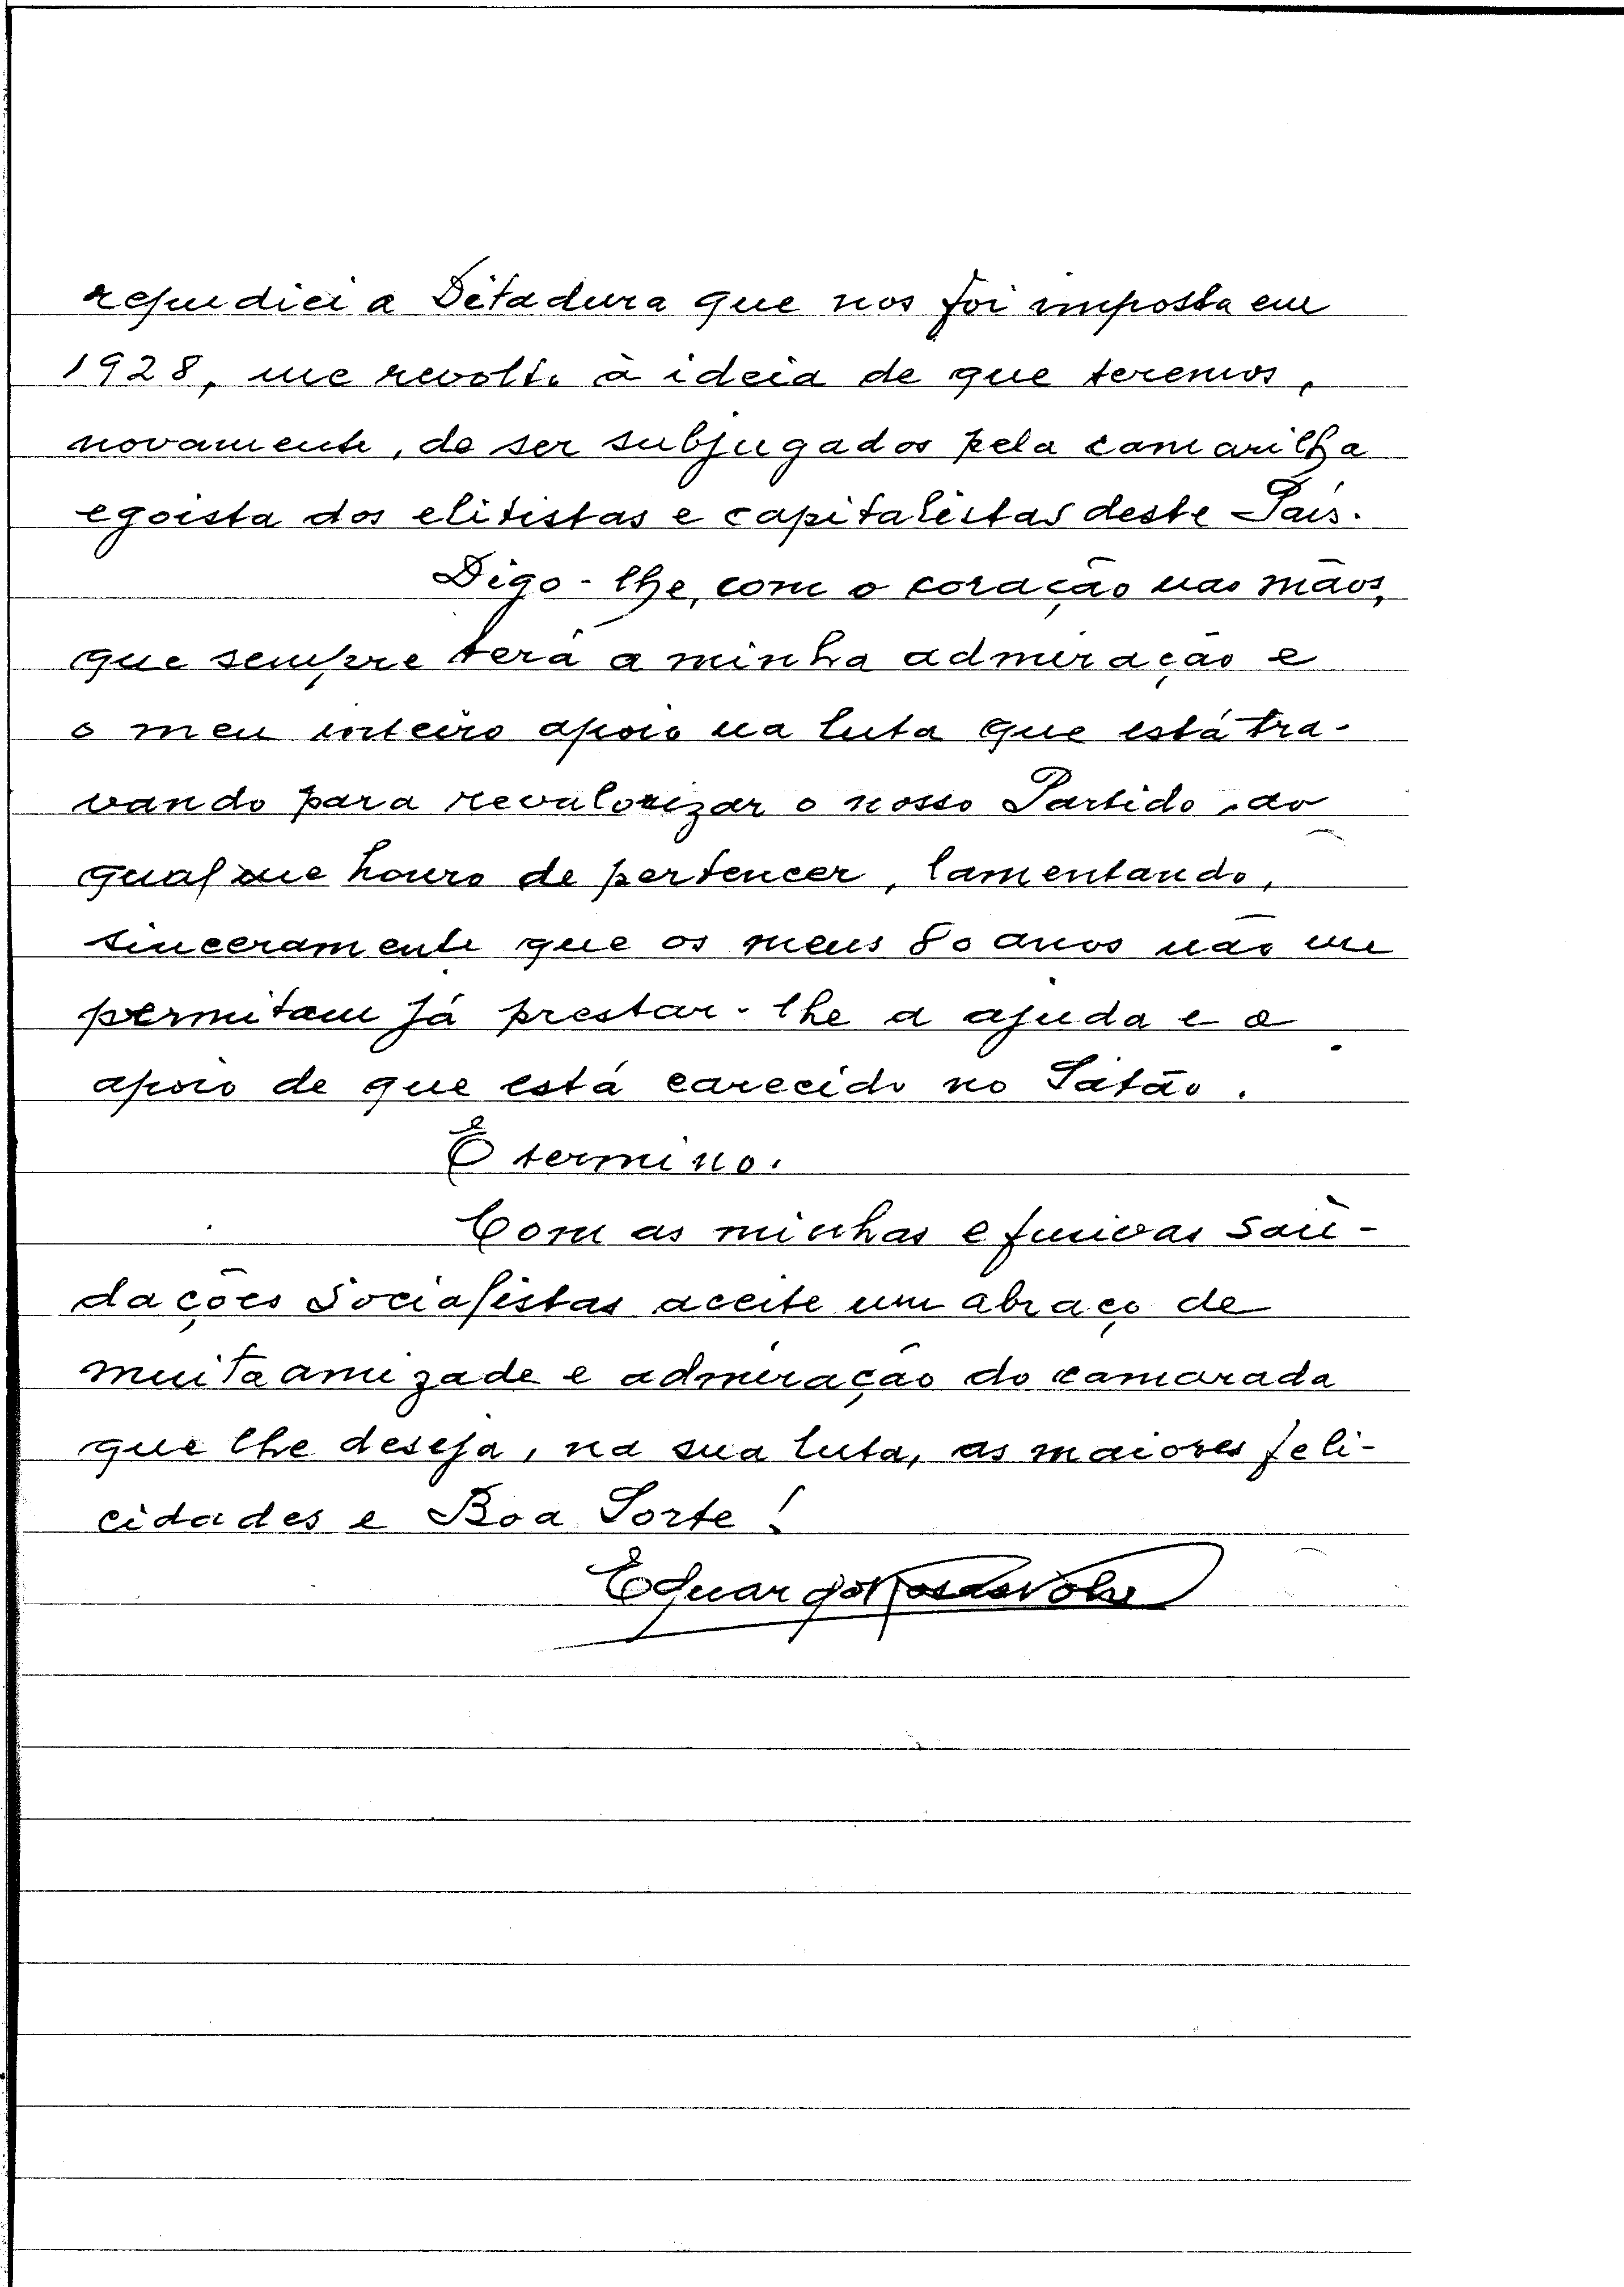 repudiei a Ditadura que nos foi imposta em
1928, me revolto à ideia de que teremos,
novamente, de ser subjugados pela camarilha
egoista dos elitistas e capitalistas deste País.
Digo-lhe, com o coração nas mãos,
que sempre terá a minha admiração e
o meu inteiro apoio na luta que está tra-
vando para revalorizar o nosso Partido, ao
qual me honro de pertencer, lamentando,
sinceramente que os meus 80 anos não me
permitam já prestar-lhe a ajuda e o
apoio de que está carecido no Satão.
E termino.
Com as minhas efusivas saü-
dações Socialistas aceite um abraço de
muita amizade e admiração do camarada
que lhe deseja, na sua luta, as maiores feli-
cidades e Boa Sorte!